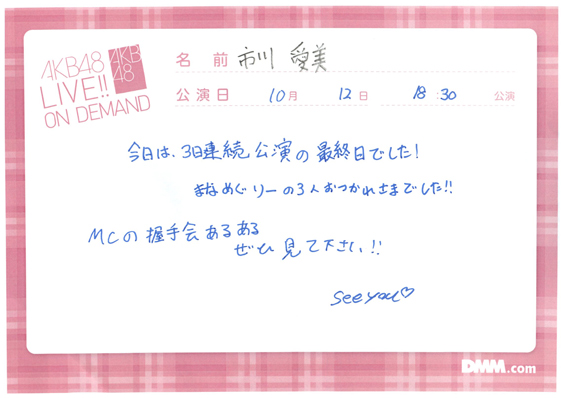 AKB48
LIVE!!
ON DEMAND
AKB
48
名 前 市川 愛美
公演日 10月 12日 18:30 公演
今日は、3日連続公演の最終日でした!
まなめぐりーの3人おつかれさまでした!!
MCの握手会あるある
ぜひ見て下さい!!
see you♡
DMM.com